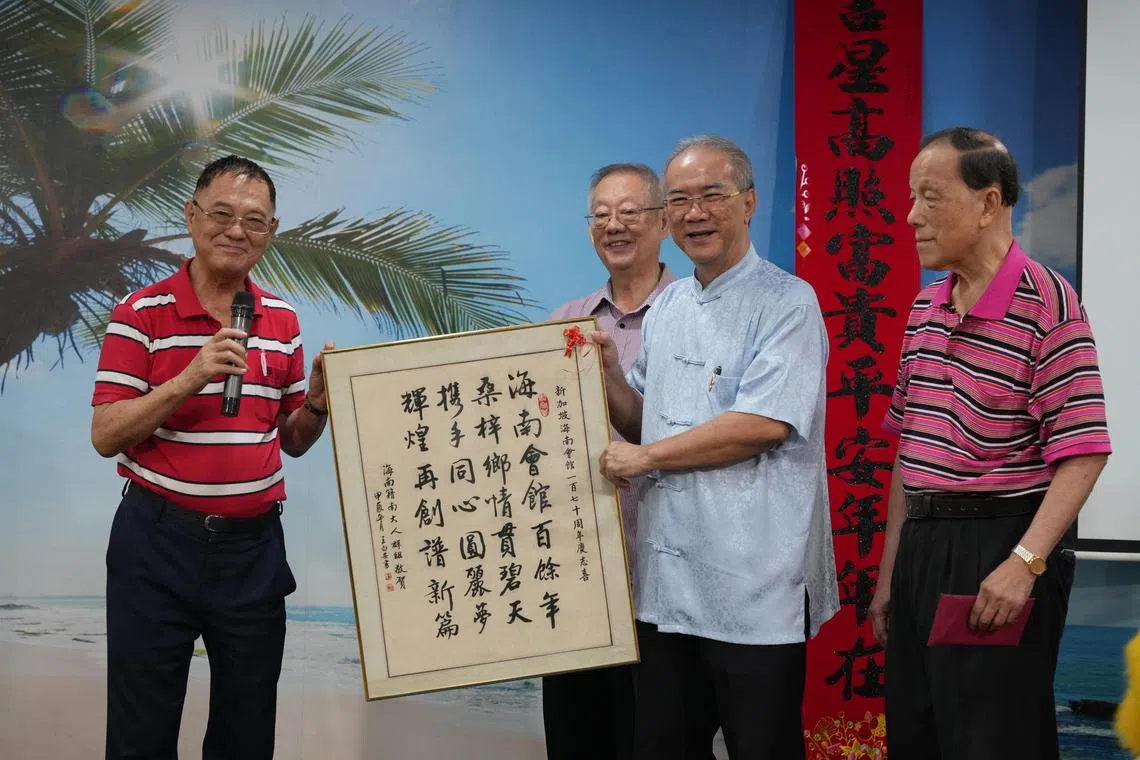 新加坡海南會館一百七十周年慶志喜
海南會館百餘年
桑梓鄉情貫碧天
携手同心圓麗夢
輝煌再創譜新篇
海南籍南大人群組敬賀
甲辰年月王
書
吉星高照富貴平安年年在